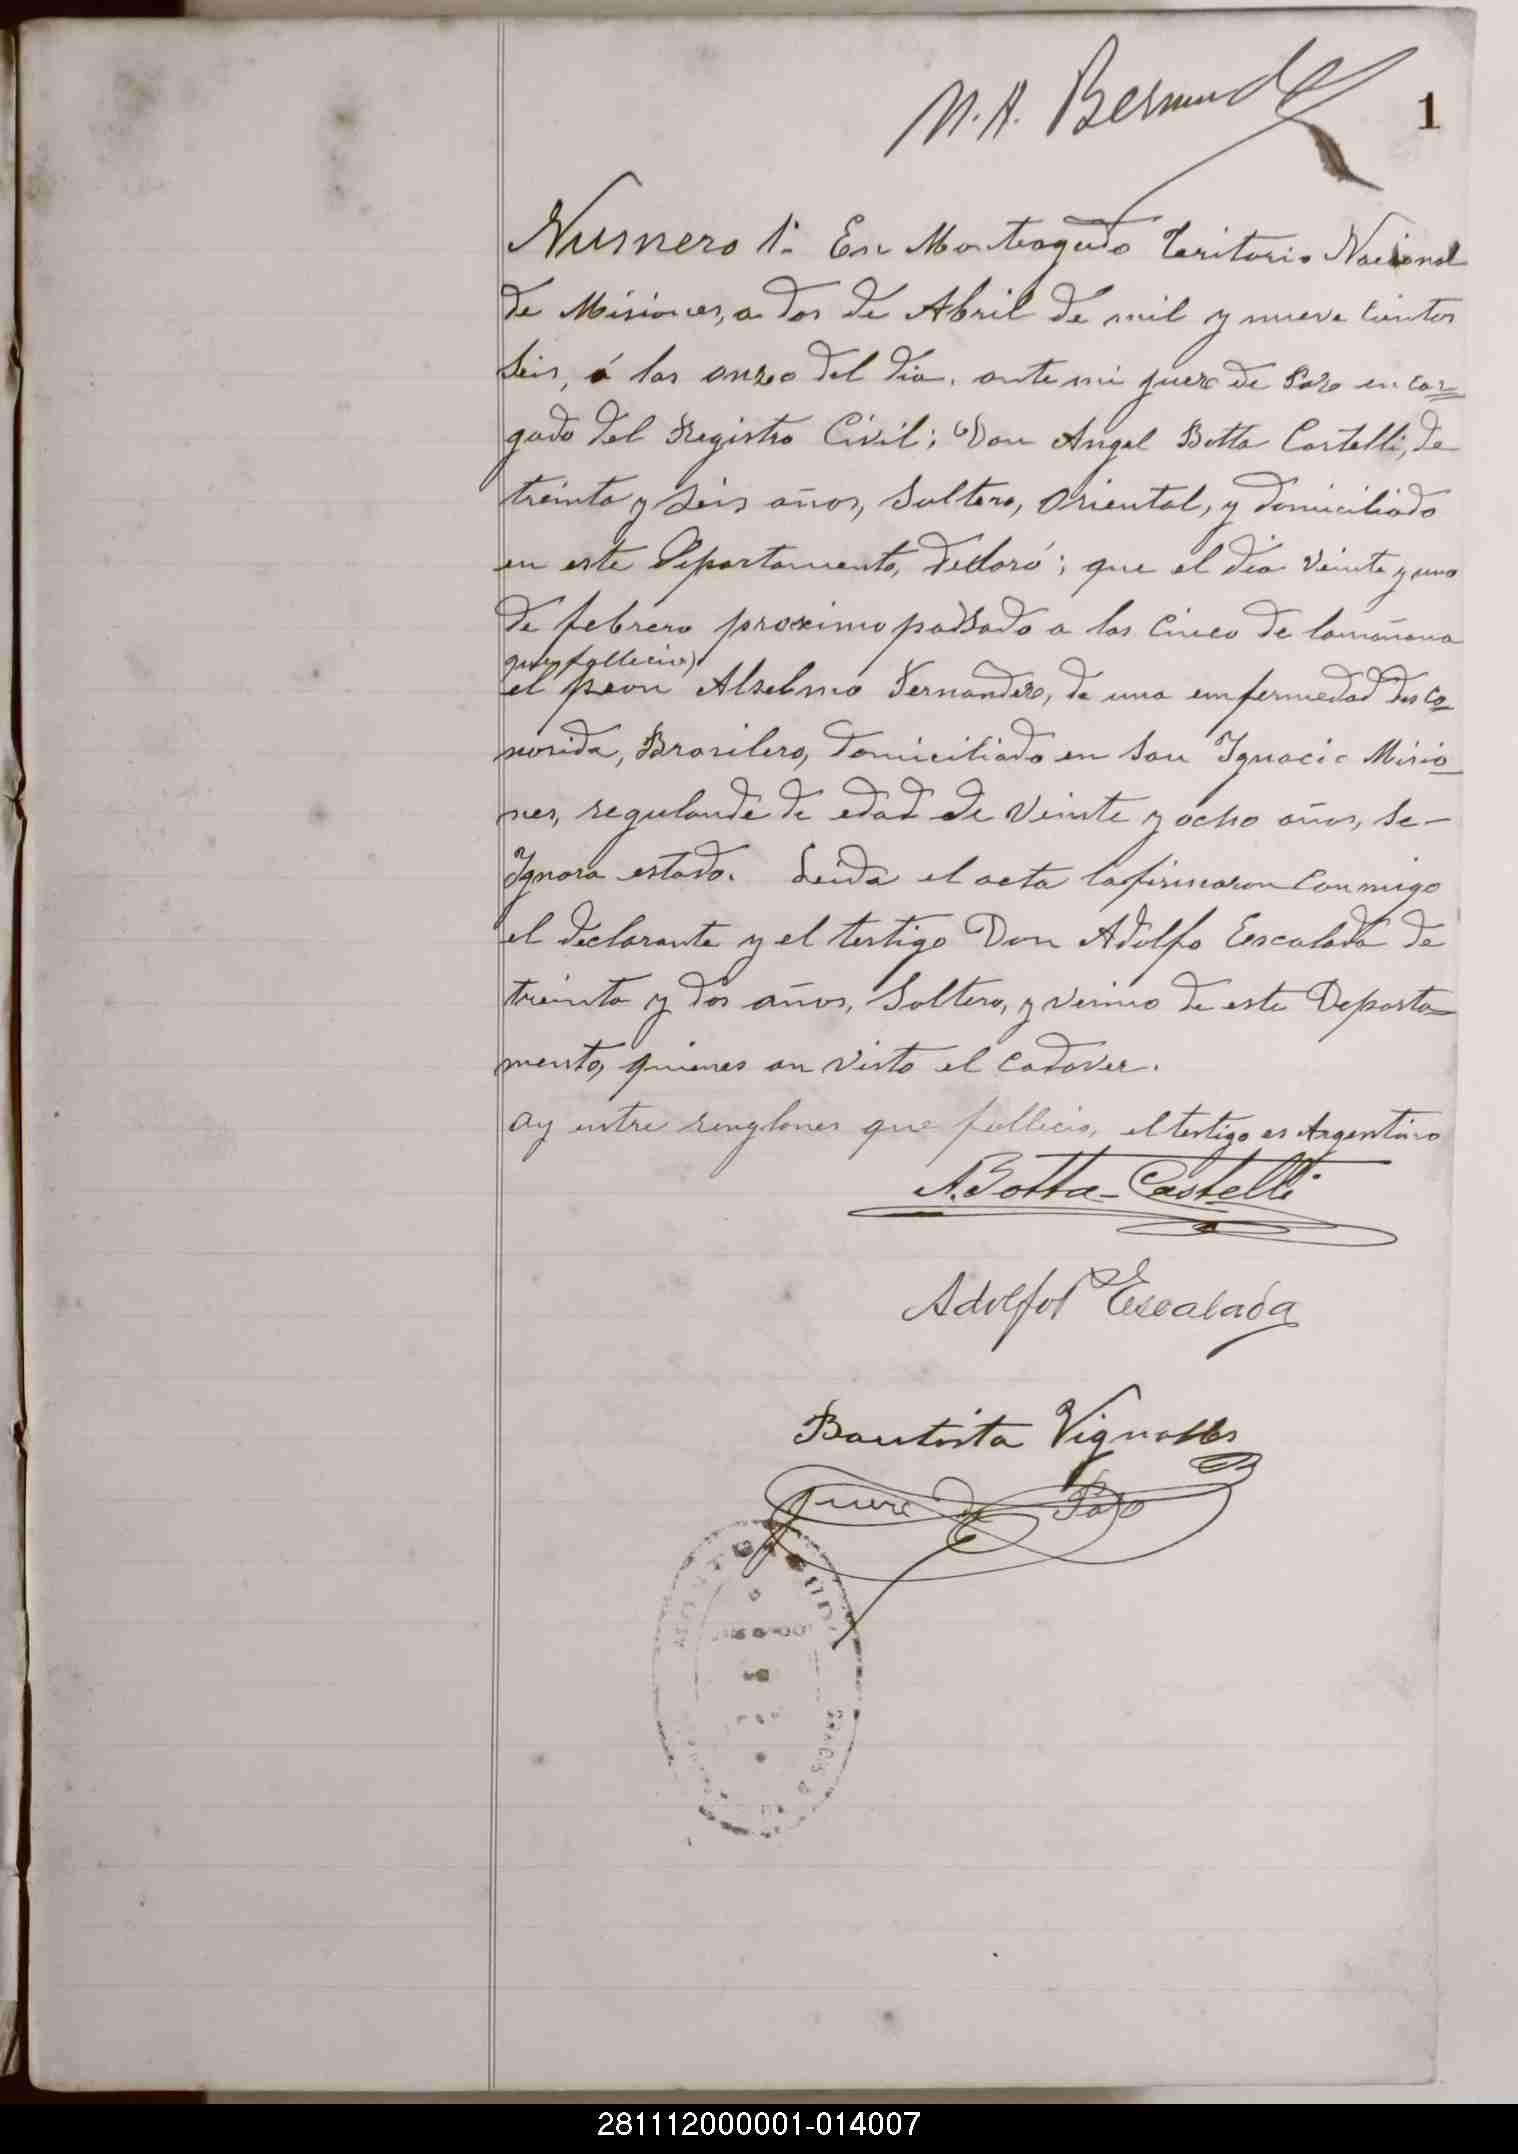 N. A. Bermudez
1
Numero 1º En Monteagudo Teritorio Nacional
de Misiones, a dos de Abril de mil y nueve cientos
seis, á las onze del dia, ante mi juez de Paz encar=
gado del Registro Civil; Don Angel Botta Castelli, de
treinta y seis años, Soltero, Oriental, y domiciliado
en este Departamento, declaró; que el dia veinte y uno
de febrero proximo passado a las cinco de lamañana
que fallecio
el peon Alselmo Fernandez, de una emfermedad desco=
nosida, Brasilero, domiciliado en San Ignacio Misio=
nes, regulandé de edad de veinte y ocho años, se-
Ignora estado. Leida el acta lafirmaron conmigo
el declarante y el testigo Don Adolfo Escalada de
treinta y dos años, Soltero, y vecino de este Departa=
mento, quienes an visto el cadaver.
ay entre renglones que fallecio, el testigo es Argentino
A. Botta-Castelli
Adolfo Escalada
Bautista Vignolles
Juez de Paz
281112000001-014007